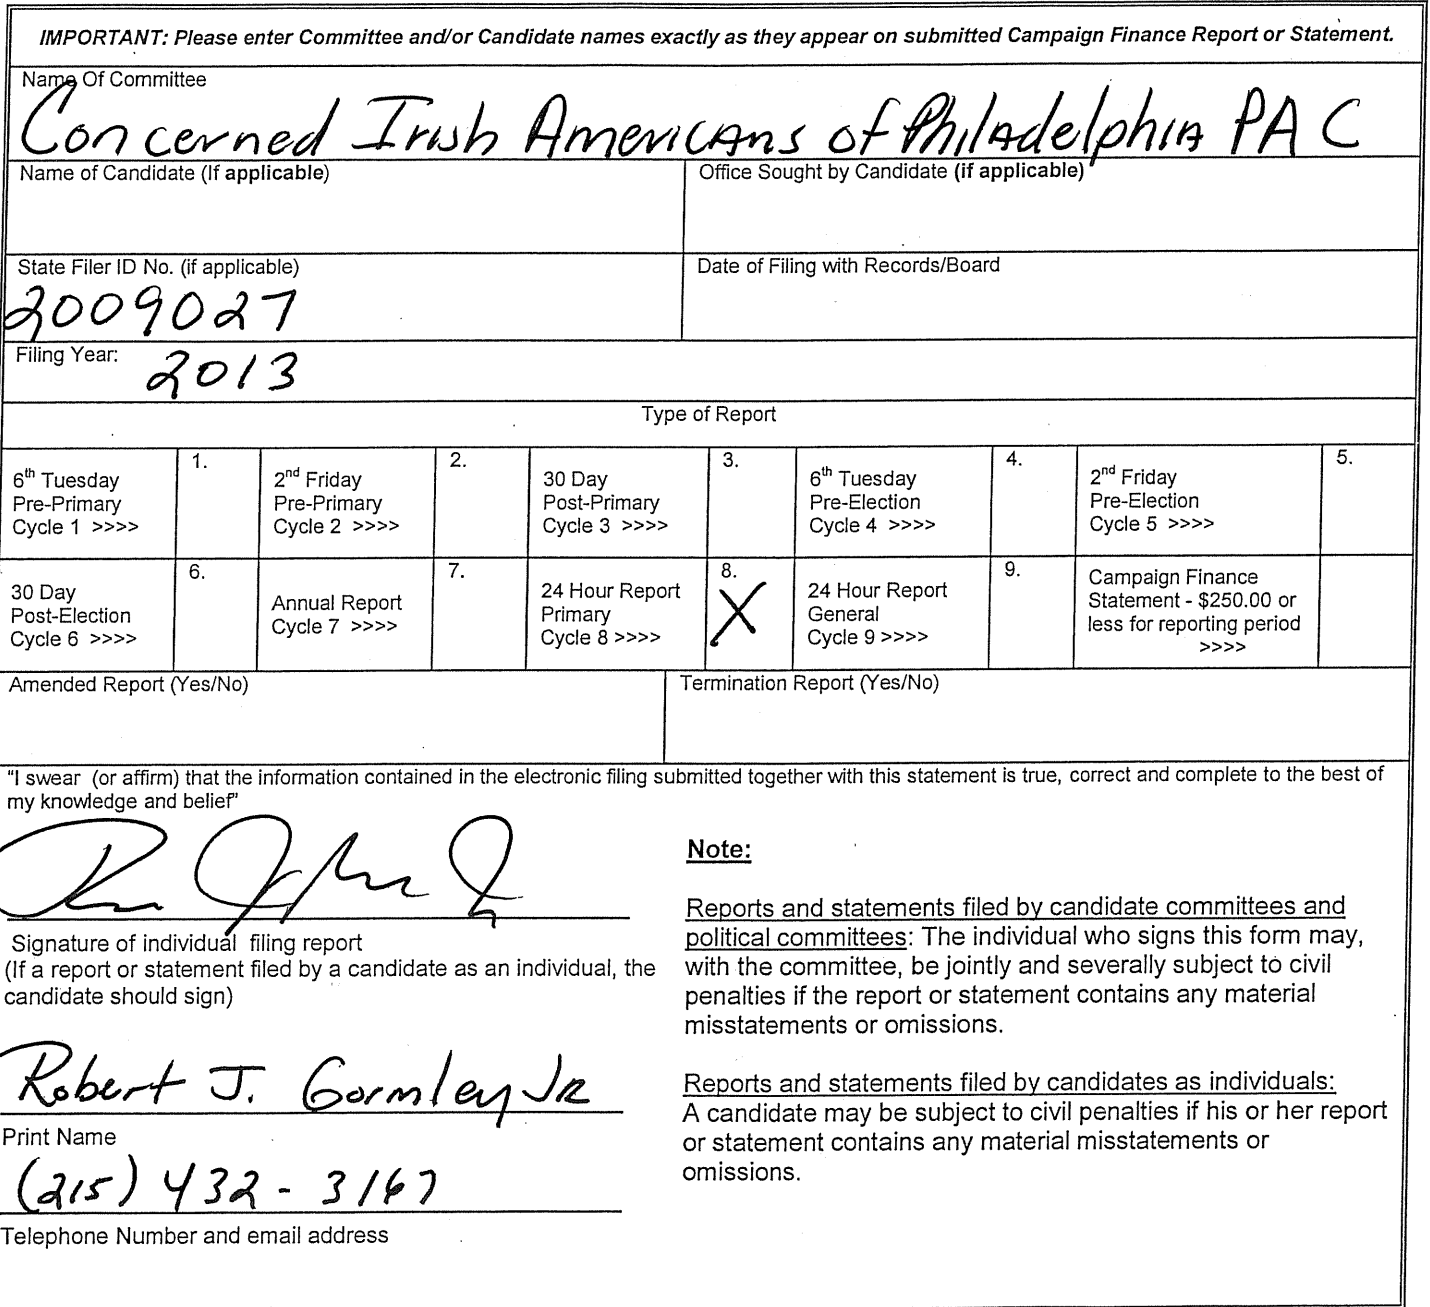 IMPORTANT: Please enter Committee and/or Candidate names exactly as they appear on submitted Campaign Finance Report or Statement.
Name Of Committee
Concerned Irish Americans of Philadelphia PAC
Name of Candidate (If applicable)
Office Sought by Candidate (if applicable)
State Filer ID No. (if applicable)
2009027
Date of Filing with Records/Board
Filing Year: 2013
Type of Report
6th Tuesday
Pre-Primary
Cycle 1 >>>>
1.
2nd Friday
Pre-Primary
Cycle 2 >>>>
2.
30 Day
Post-Primary
Cycle 3 >>>>
3.
6th Tuesday
Pre-Election
Cycle 4 >>>>
4.
2nd Friday
Pre-Election
Cycle 5 >>>>
5.
30 Day
Post-Election
Cycle 6 >>>>
6.
Annual Report
Cycle 7 >>>>
7.
24 Hour Report
Primary
Cycle 8 >>>>
8.
X
24 Hour Report
General
Cycle 9 >>>>
9.
Campaign Finance
Statement - $250.00 or
less for reporting period
>>>>
Amended Report (Yes/No)
Termination Report (Yes/No)
"I swear (or affirm) that the information contained in the electronic filing submitted together with this statement is true, correct and complete to the best of
my knowledge and belief"
Signature of individual filing report
(If a report or statement filed by a candidate as an individual, the
candidate should sign)
Robert J. Gormley Jr
Print Name
(215) 432-3167
Telephone Number and email address
Note:
Reports and statements filed by candidate committees and
political committees: The individual who signs this form may,
with the committee, be jointly and severally subject to civil
penalties if the report or statement contains any material
misstatements or omissions.
Reports and statements filed by candidates as individuals:
A candidate may be subject to civil penalties if his or her report
or statement contains any material misstatements or
omissions.